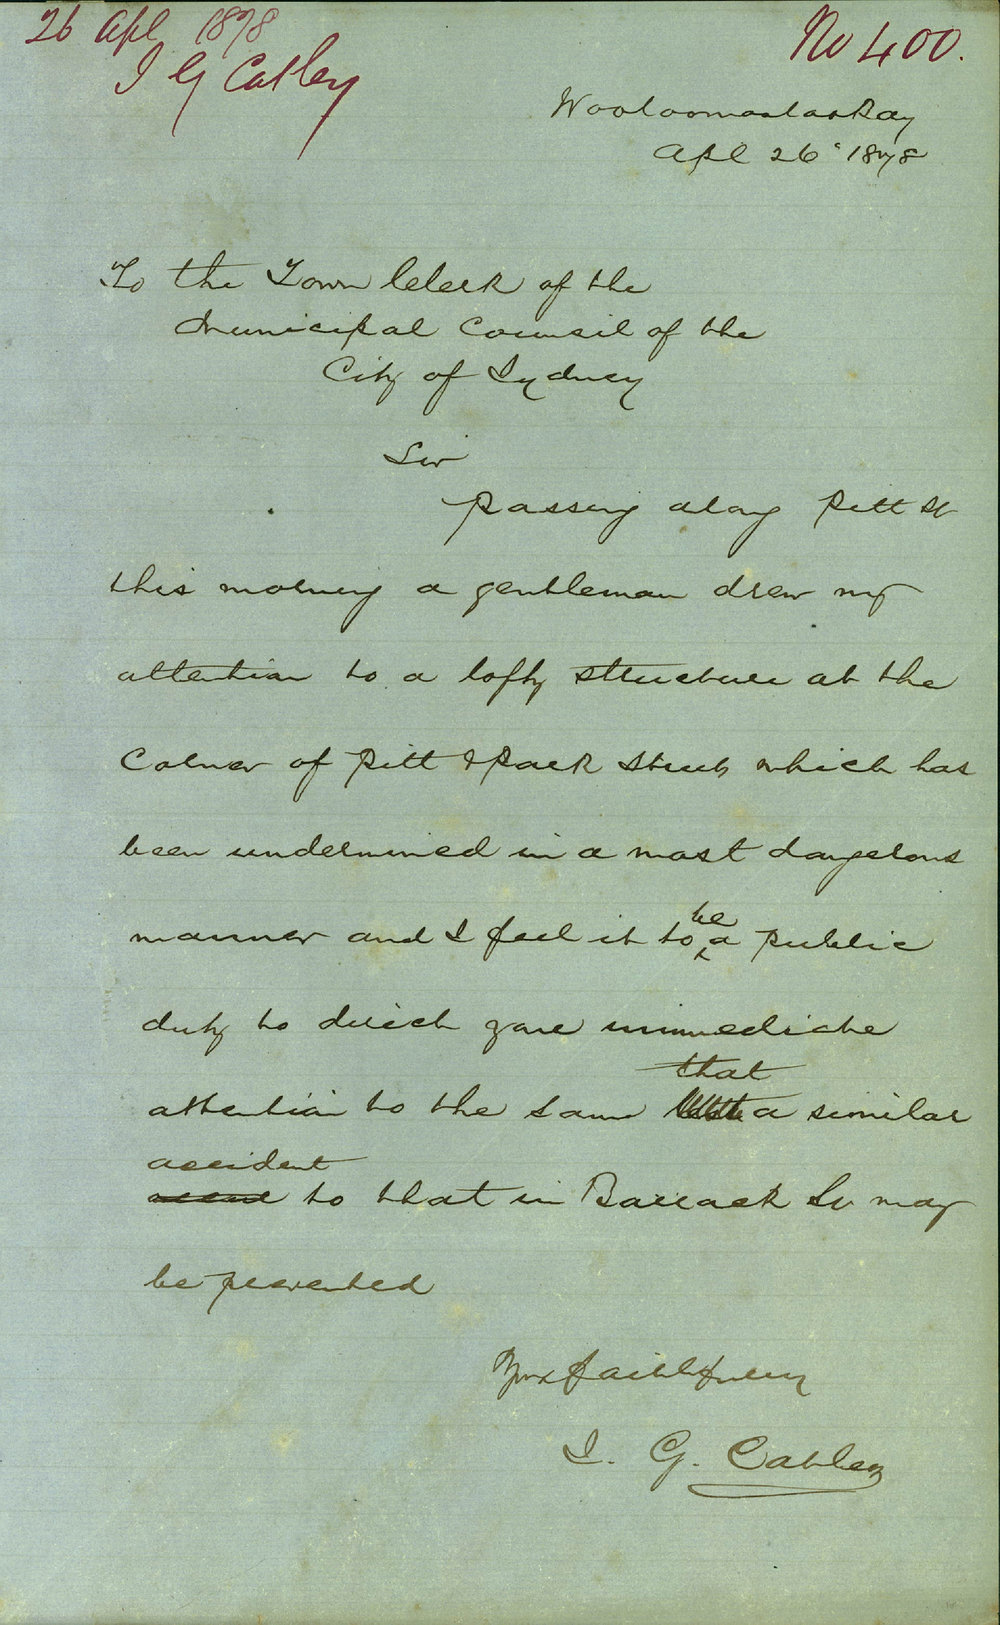 26 Apl 1878
J G Catley
No 400.
Wooloomooloo Bay
Apl 26 1878
To the Town Clerk of the
Municipal Council of the
City of Sydney
Sir
Passing along Pitt St
this morning a gentleman drew my
attention to a lofty structure at the
Corner of Pitt & Park Streets which has
been undermined in a most dangerous
manner and I feel it to be a public
duty to direct your immediate
that
attention to the same a similar
accident
to that in Barrack St may
be prevented
Yours faithfully
J. G. Catley